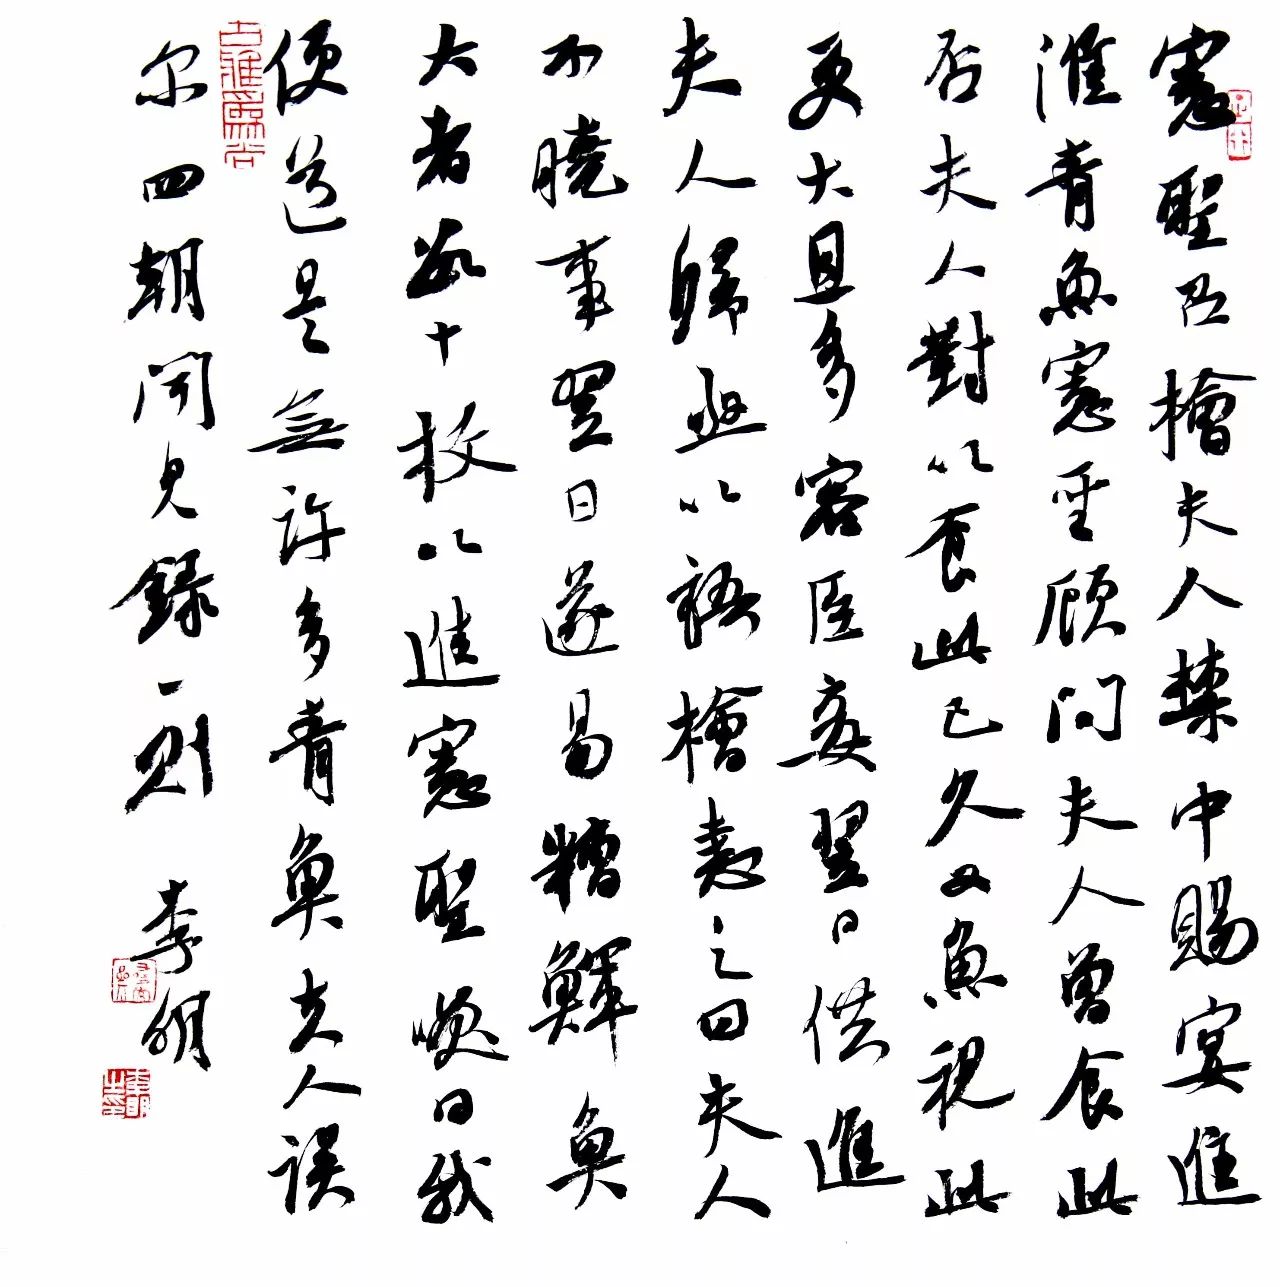 憲聖召檜夫人禁中賜宴進
淮青魚憲聖顧問夫人曾食此
否夫人對以食此已久又魚視此
更大且多容臣妾翌日供進
夫人歸亟以語檜恚之曰夫人
不曉事翌日遂易糟鯶魚
大者數十枚以進憲聖曰我
便道是無許多青魚夫人誤
尔 四朝聞見錄一則 李明